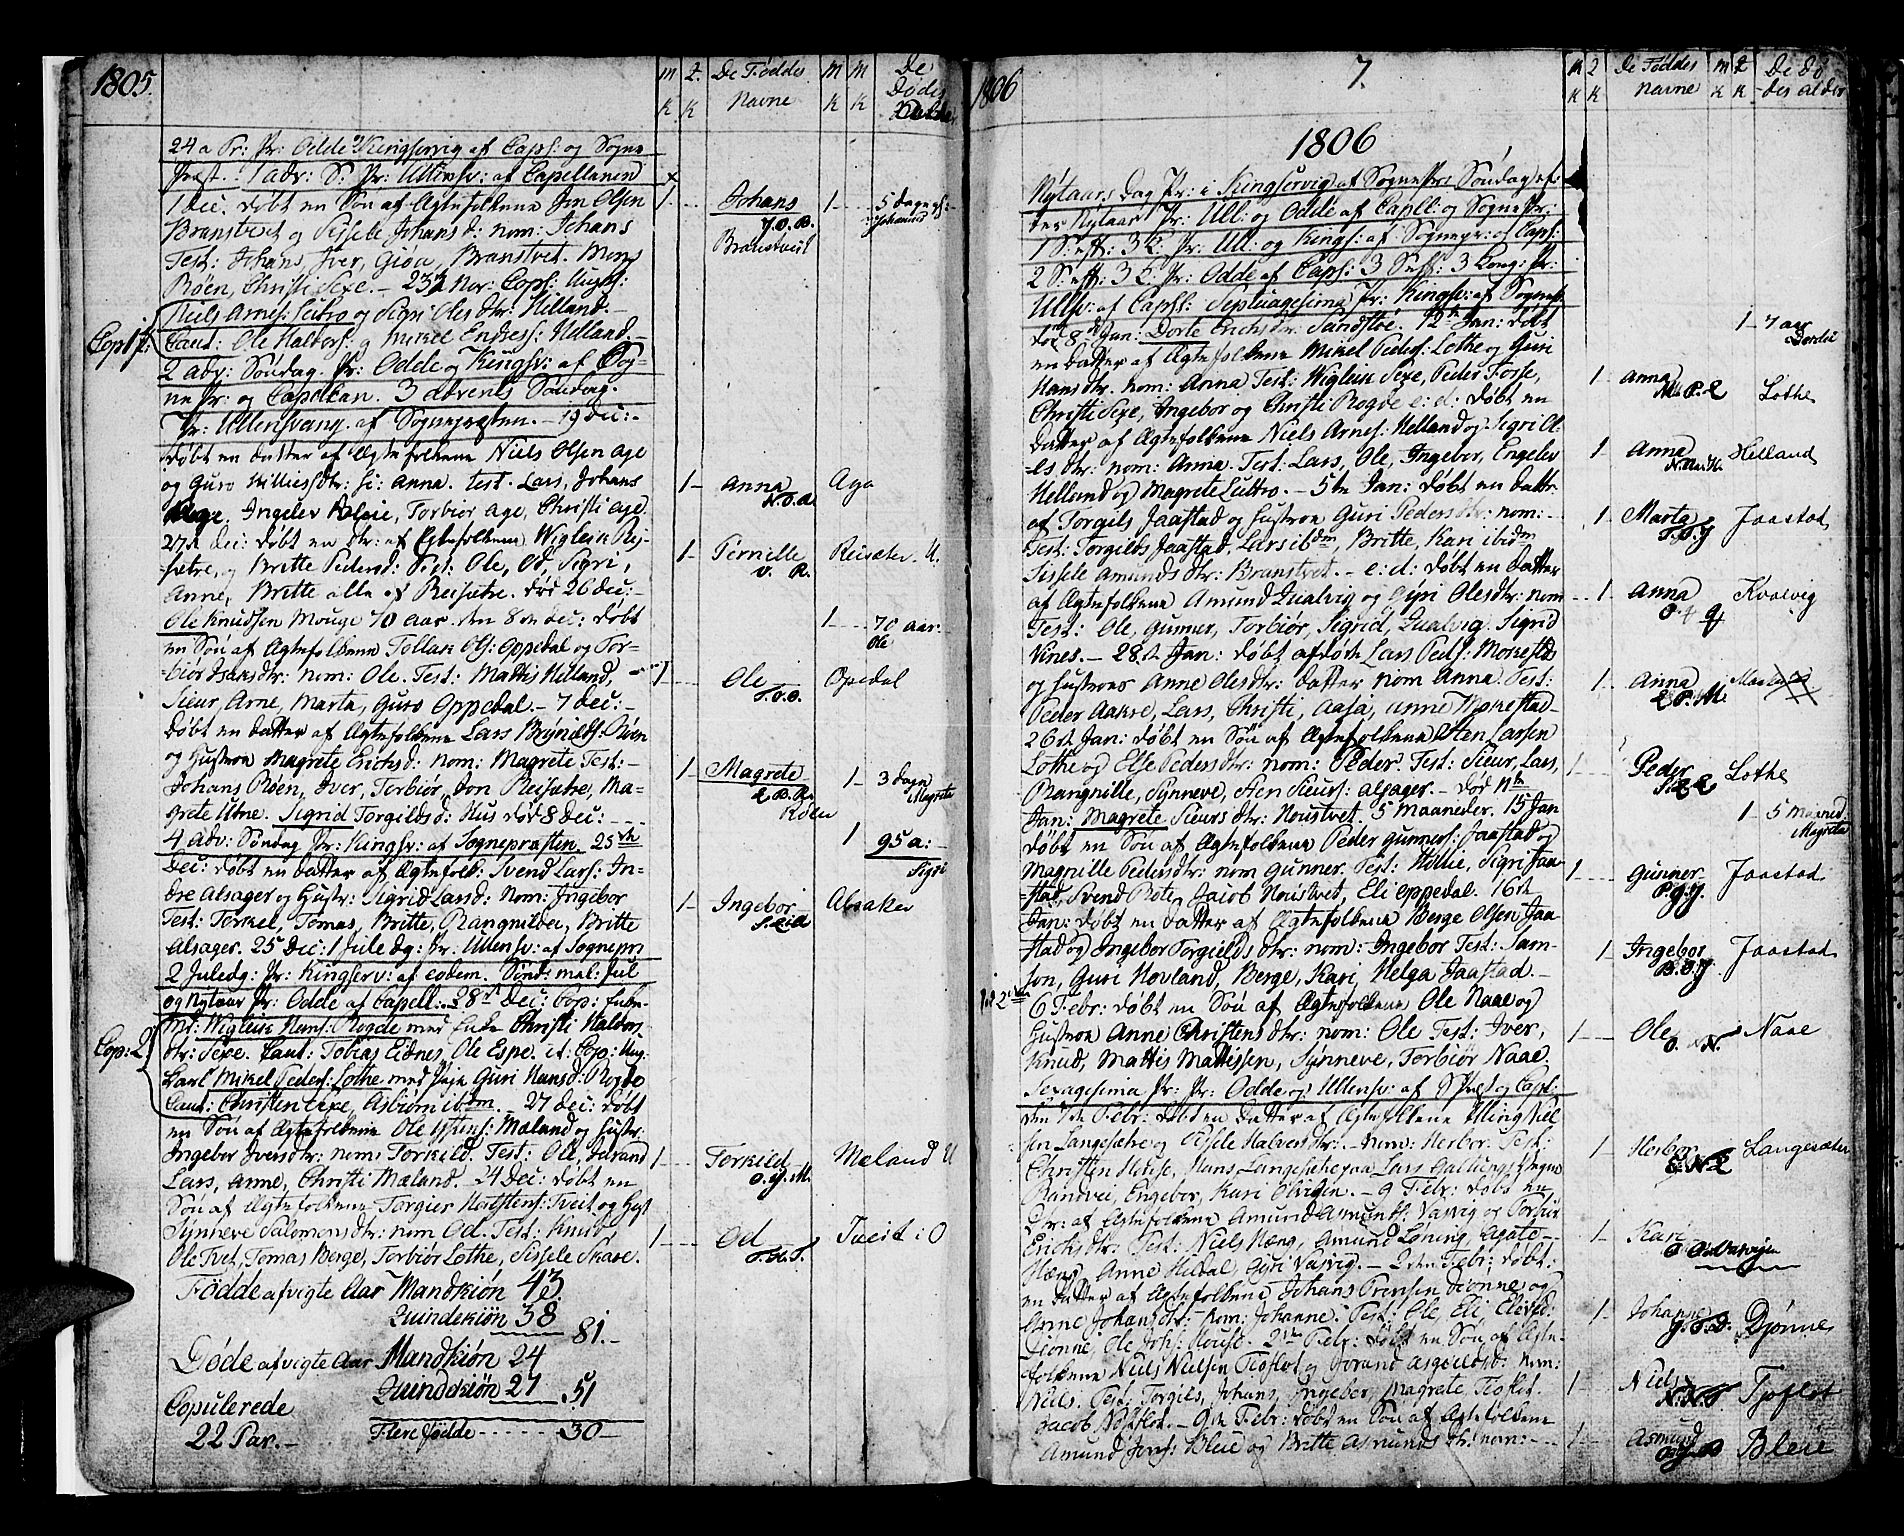 1805
m 2 De Føddes m m De
k k Navne k k Dødes Alder
24 a Tr: Pr: Odde Kingservig af Capl: og Sogne
Præst. 1 adv: S: Pr: Ullensv: af Capellanen
1 Dec. døbt en Søn af Ægtefolkene Jon Olsen
Branstveit og Sissele Johansd: nom: Johans
Test: Johans, Iver, Giøa, Branstvet. Mons
Røen, Christi Sexe. - 23 Nov: Cop:
Niels Arnes: Lutro og Sigri Oles dtr: Helland. -
Caut: Ole Halvors: og Mikel Endres: Helland. -
2 adv: Søndag. Pr: Odde og Kingsv: af Sog-
ne pr: og Capellan. 3 advents Søndag.
Pr: Ullensvang af Sognepræsten. - 19 Dec: -
døbt en datter af Ægtefolkene Niels Olsen Age
og Guro Willies dtr: h: Anna. Test. Lars, Johans
Age, Ingelev Bleie, Torbiør Age, Christi Age.
27d Dec: døbt en dtr: af Ægtefolkene Wiglein Rei-
sætre, og Britte Pedersd: Test: Ole, Od, Sigri,
Anne, Britte alle af Reisetre. død 26 Dec: -
Ole Knudsen Mouge 70 aar. den 8 de Dec: døbt
en Søn af Ægtefolkene Tollak Ols: Oppedal og Tor-
biør Isaks dtr: nom: Ole. Test: Mattis Helland,
Sieur, Arne, Marta, Guro Oppedal. - 7 Dec: -
døbt en datter af Ægtefolkene Lars Brynilds: Røen
og Hustroe Magrete Erichsd: nom: Magrete Test: -
Johans Røen, Iver, Torbiør, Jon Reisetre, Ma-
grete Utne. Sigrid Torgilds d: Hus død 8 Dec: -
4 adv: Søndag Pr: Kingsv: af Sognepræsten. 25 de
Dec: døbt en datter af Ægtefolk: Svend Lars: In-
dre Alsager og Hustr: Sigrid Larsd: Nom: Ingebor
Test: Torkel, Tomas, Britte, Rangnilde, Britte
Alsager. 25 Dec: 1 Juledg: Pr: Ullensv: af Sognepr:
2 Juledg: Pr: Kingserv: af eodem. Sønd: mel: Jul
og Nytaar Pr: Odde af Capell: 28 d Dec: Cop:
Wiglein Hans: Rogde med Enke Christi Halvors
dtr: Sexe. Caut: Tobias Eidnes, Ole Espe. it: Cop: Ung
Karl Mikel Peders: Lothe med Pige Guri Hansd: Rogde
Caut: Christen Sexe, Asbiørn ibdm. - 27 Dec: døbt
en Søn af Ægtefolkene Ole Iffuns: Mæland og Hustr:
Ingebor Ivers dtr: nom: Torkild. Test: Ole, Jorand
Lars, Anne, Christi Mæland. 24 Dec: døbt en
Søn af Ægtefolkene Torgier Hoistens: Tveit og Hust
Synneve Salomons dtr: nom Od. Test: Knud
Ole Tvet, Tomas Berge, Torbiør Lothe, Sissele Skare.
Fødde afvigte Aar Mandkiøn 43.
Quindekiøn 38
81. -
Døde afvigte Aar Mandkiøn 24
Quindekiøn 27 51
Copulerede
22 Par. - Flere fødde - - - - - 30 -
Cop 1
Cop: 2
1 Johans J.O.B. Branstveit 1 5 dage gl: Johannes
1 Anna N.O.A. Aga
1 Pernille V. R. Reisæter. U.
1 70 aar. Ole
1 Ole T.O.O. Opedal
1 Magrete L.B.R. Røen 1 3 dage Magreta
1 95 a: Sigri
1 Ingebor Alsaker
1 Torkild O.I.M. Mæland U
1 Od T.H.T. Tveit i O
1806
7.
m 2 De Føddes m 2 De Dø-
k k Navne k k des alder
1806
Nytaars Dag Pr: i Kingservig af Sognepr: Søndag ef-
ter Nytaar Pr: Ull: og Odde af Capll: og Sognepr:
1 S: eft: 3 K. Pr: Ull: og Kings: af Sognepr: af Capl:
2 S: eft: 3 K Pr: Odde af Capl: 3 S: eft: 3 Kong: Pr:
Ullsv: af Capll: Septuagesima Pr: Kingsv: af Sognepr
død 8 Jan: Dorte Erichs dtr: Sandstøe. 12 te Jan: døbt
en datter af Ægtefolkene Mikel Peders: Lothe og Guri
Hans dtr. nom: Anna Test: Wiglein Sexe, Peder Fosse,
Christi Sexe, Ingebor og Christi Rogde e: d: døbt en
datter af Ægtefolkene Niels Arnes: Helland og Sigri O-
les dtr: nom: Anna. Test: Lars, Ole, Ingebor, Engelev
Helland og Magrete Luttro. - 5 te Jan: døbt en dattr.
af Torgils Jaastad og Hustroe Guri Peders dtr: nom: -
Test: Torgilds Jaastad, Lars ibdm, Britte, Kari ibidm
Sissele Amunds dtr: Branstvet. - e: d: døbt en datter
af Ægtefolkene Amund Qualvig og Siri Oles dtr: nom
Test: Ole, Gunner, Torbiør, Sigrid, Qualvig. Sigrid
Vines. - 28 d. Jan: døbt afdøde Lars Peds: Mokestds
og Hustroes Anne Oles dtr: datter nom Anna. Test:
Peder Aakre, Lars, Christi, Aasa, Anne Mokestad.
26 d. Jan: døbt en Søn af Ægtefolkene Sten Larsen
Lothe og Else Peders dtr: nom: Peder. Test: Sieur, Lars,
Rangnille, Synneve, Sten Sieurs: Alsager. - død 11 te
Jan: Magrete Sieurs dtr: Noustvet. 5 Maaneder. 15 Jan
døbt en Søn af Ægtefolkene Peder Gunners: Jaastad og
Magnille Peders dtr: nom Gunner. Test: Hellie, Sigri Jaa-
stad, Svend Rote, Jacob Noustvet, Eli Oppedal. 16 d.
Jan: døbt en datter af Ægtefolkene Berge Olsen Jaa-
stad og Ingebor Torgilds dtr: nom: Ingebor Test: Sam-
son, Guri Hovland, Berge, Kari, Helga Jaastad. -
6 Febr: døbt en Søn af Ægtefolkene Ole Naae og
Hustroe Anne Christens dtr: nom: Ole Test: Iver,
Knud, Mattis Mattissen, Synneve, Torbiør Naae.
Sexagesima Pr: Pr: Odde og Ullensv: af S: Præst og Capl:
den 7 de Febr: døbt en datter af Ægtefolkene Elling Niel-
sen Langesætre og Sissele Halvers dtr: - Nom: Herbor. Test:
Christen House, Hans Langesæter, Lars Galtung, Syngne
Randvei, Engebor, Kari Olvigen. - 9 Febr: døbt en
Dtr: af Ægtefolkene Amund Amunds: Vasvig og Torbiør
Erichs dtr: Test: Niels Hæng, Amund Loning, Agate -
Hæng, Anne Hildal, Guri Vasvig. - 2 den Febr: døbt:
en datter af Ægtefolkene Johans Prensen Diønne og
Anne Johans dtr: - nom: Johanne. Test: Ole, Eli, Eleved
Diønne, Ole Johs: House. 2 den Febr: døbt en Søn af Ægte-
folkene Niels Nielsen Tiøflot og Jorand Asgeilds d: nom:
Niels. Test: Torgils, Johans, Ingebor, Magrete, Tioflot.
Jacob Tiøflot. - 9 de Febr: døbt en Søn af Ægtefolkene
Amund Jons: Bleie og Britte Asmunds dtr: nom: -
1 7 aar Dordei
1 Anna M. P. L Lothe
1 Anna N.A.H. Helland
1 Marta T. J Jaastad
1 Anna Kvalvig
1 Anna L.P.M.
1 Peder S.L.L Lothe
1 5 Maaned: Magreta
1 Gunner P.G.J. Jaastad
1 Ingebor B.O.J. Jaastad
1 Ole O. N. Naae
1 Herbor E.N.L Langesæter
1 Kari Vasvigen
1 Johanne J.P.D. Djønne
1 Niels N.N.T Tjoflot
1 Asmund Bleie